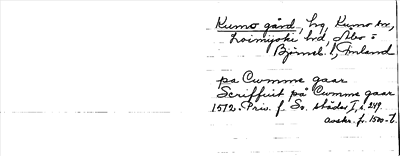 Kumo gård, hg, Kumo sn,
Loimijoki hd, Åbo =
Björneb. l, Finland
pa Cwmme gaar
Scriffuit på Cwmme gaar
1572. Priv. f. Sv. städer, I, s. 249.
avskr. fr. 1500-t.